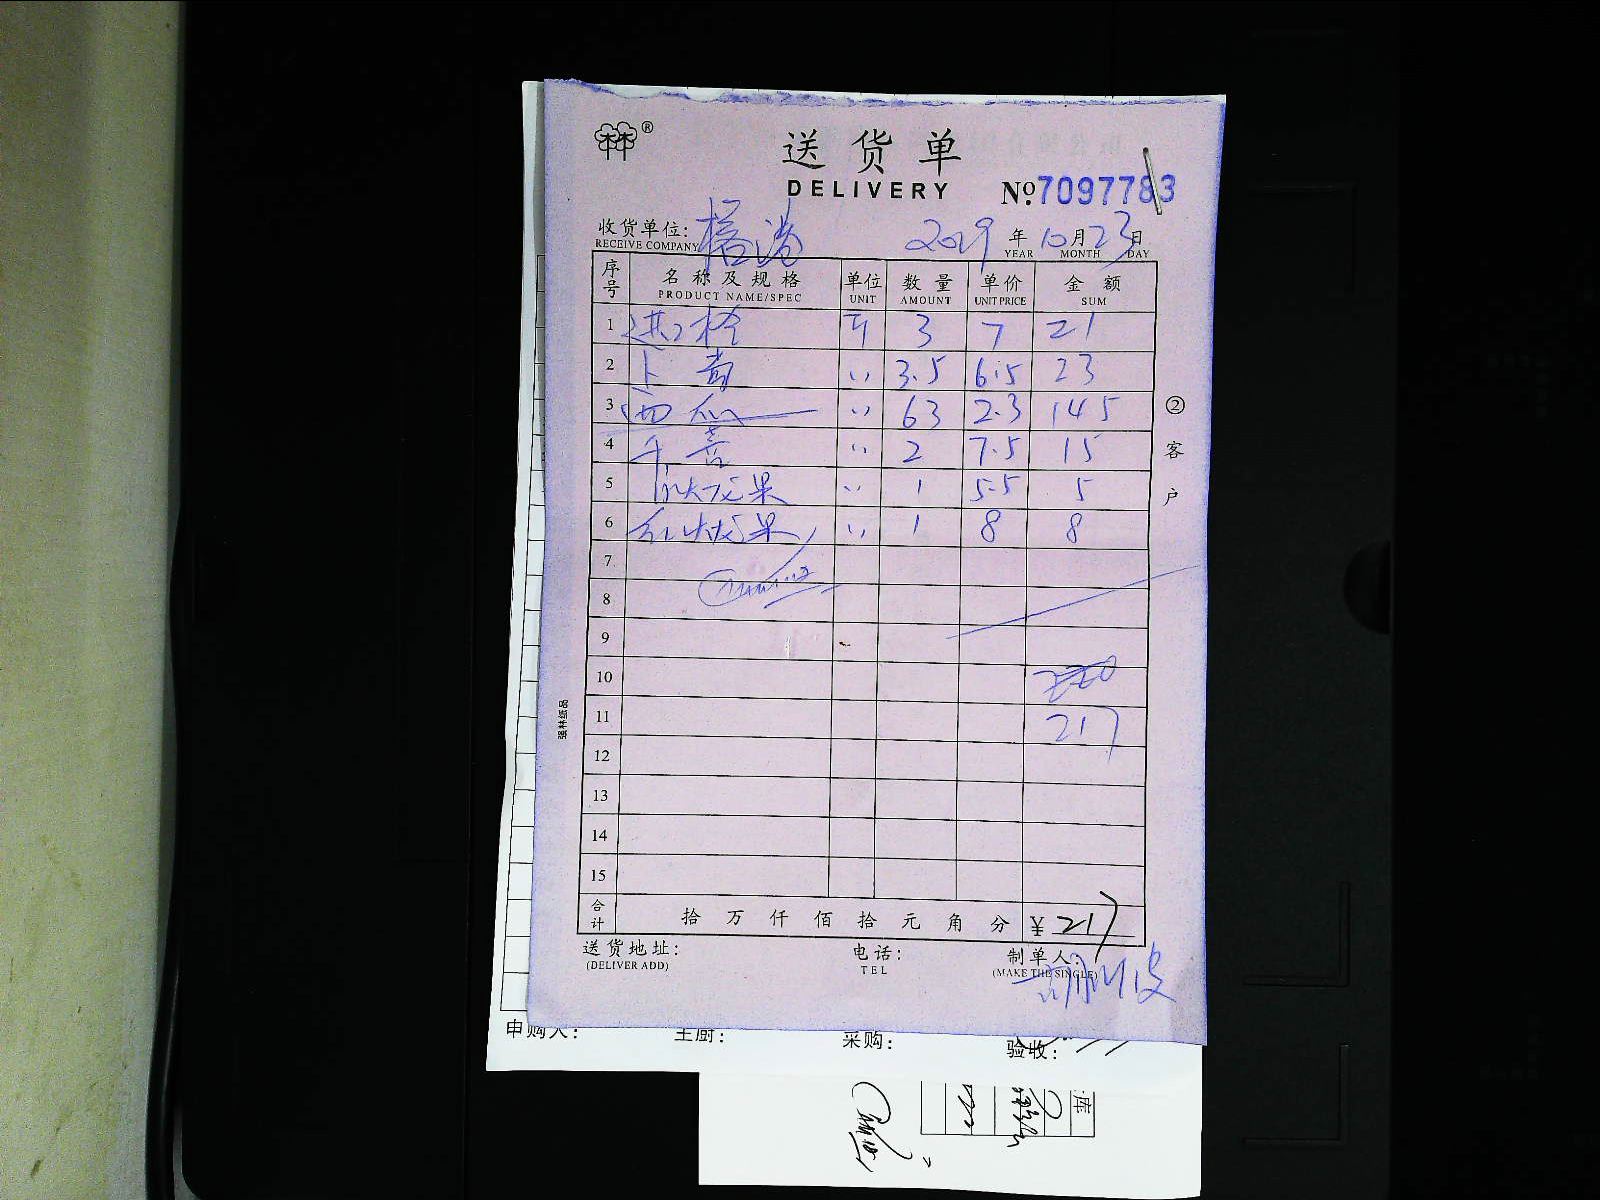 ®
送货单
DELIVERY
№7097783
收货单位: 2019年10月23日
RECEIVE COMPANY YEAR MONTH DAY
序号 名称及规格 单位 数量 单价 金额
PRODUCT NAME/SPEC UNIT AMOUNT UNIT PRICE SUM
1 斤 3 7 21
2 〃 3.5 6.5 23
3 西瓜 〃 63 2.3 145
4 〃 2 7.5 15
5 火龙果 〃 1 5.5 5
6 红火龙果 〃 1 8 8
7
8
9
10
11 217
12
13
14
15
合计 拾万仟佰拾元角分 ¥217
送货地址: 电话: 制单人:
(DELIVER ADD) TEL (MAKE THE SINGLE)
②客户
强林纸品
申购人: 主厨: 采购: 验收:
库